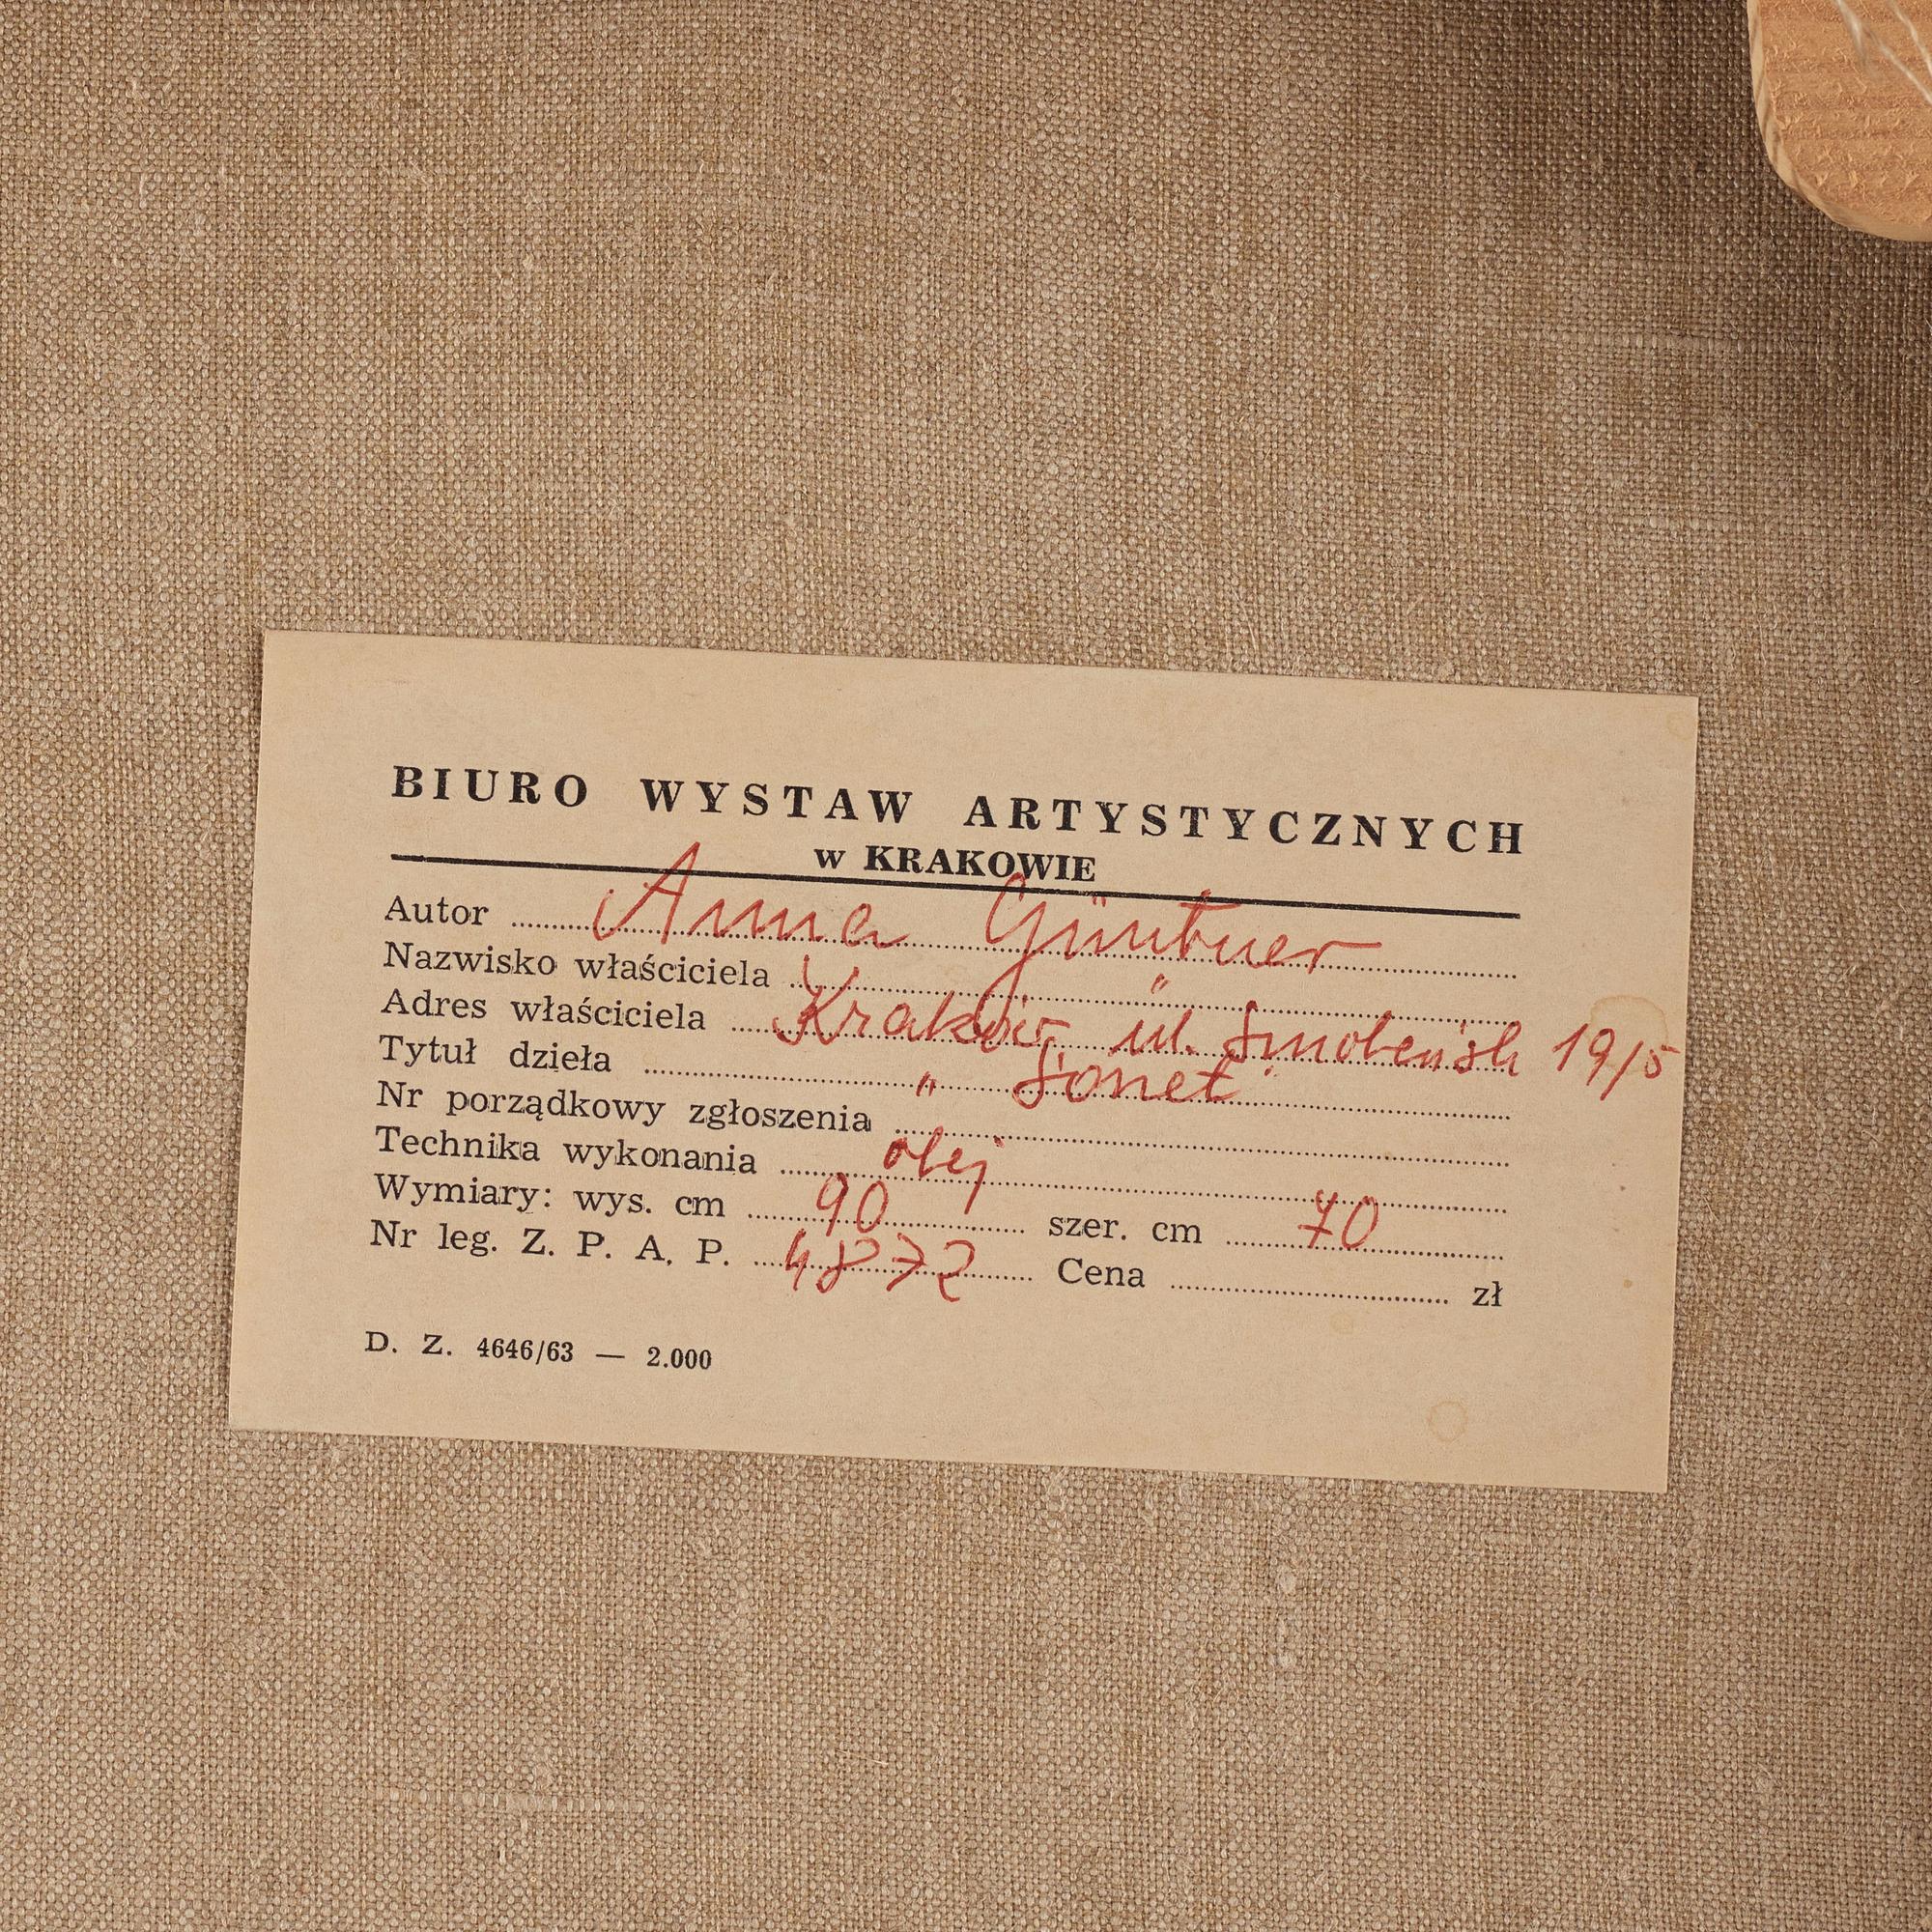 BIURO WYSTAW ARTYSTYCZNYCH
w KRAKOWIE
Autor Anna Güntner
Nazwisko właściciela "
Adres właściciela Kraków, ul. Smoleńsk 19/5
Tytuł dzieła „Sonet"
Nr porządkowy zgłoszenia
Technika wykonania olej
Wymiary: wys. cm 90 szer. cm 70
Nr leg. Z. P. A. P. 4872 Cena zł
D. Z. 4646/63 — 2.000